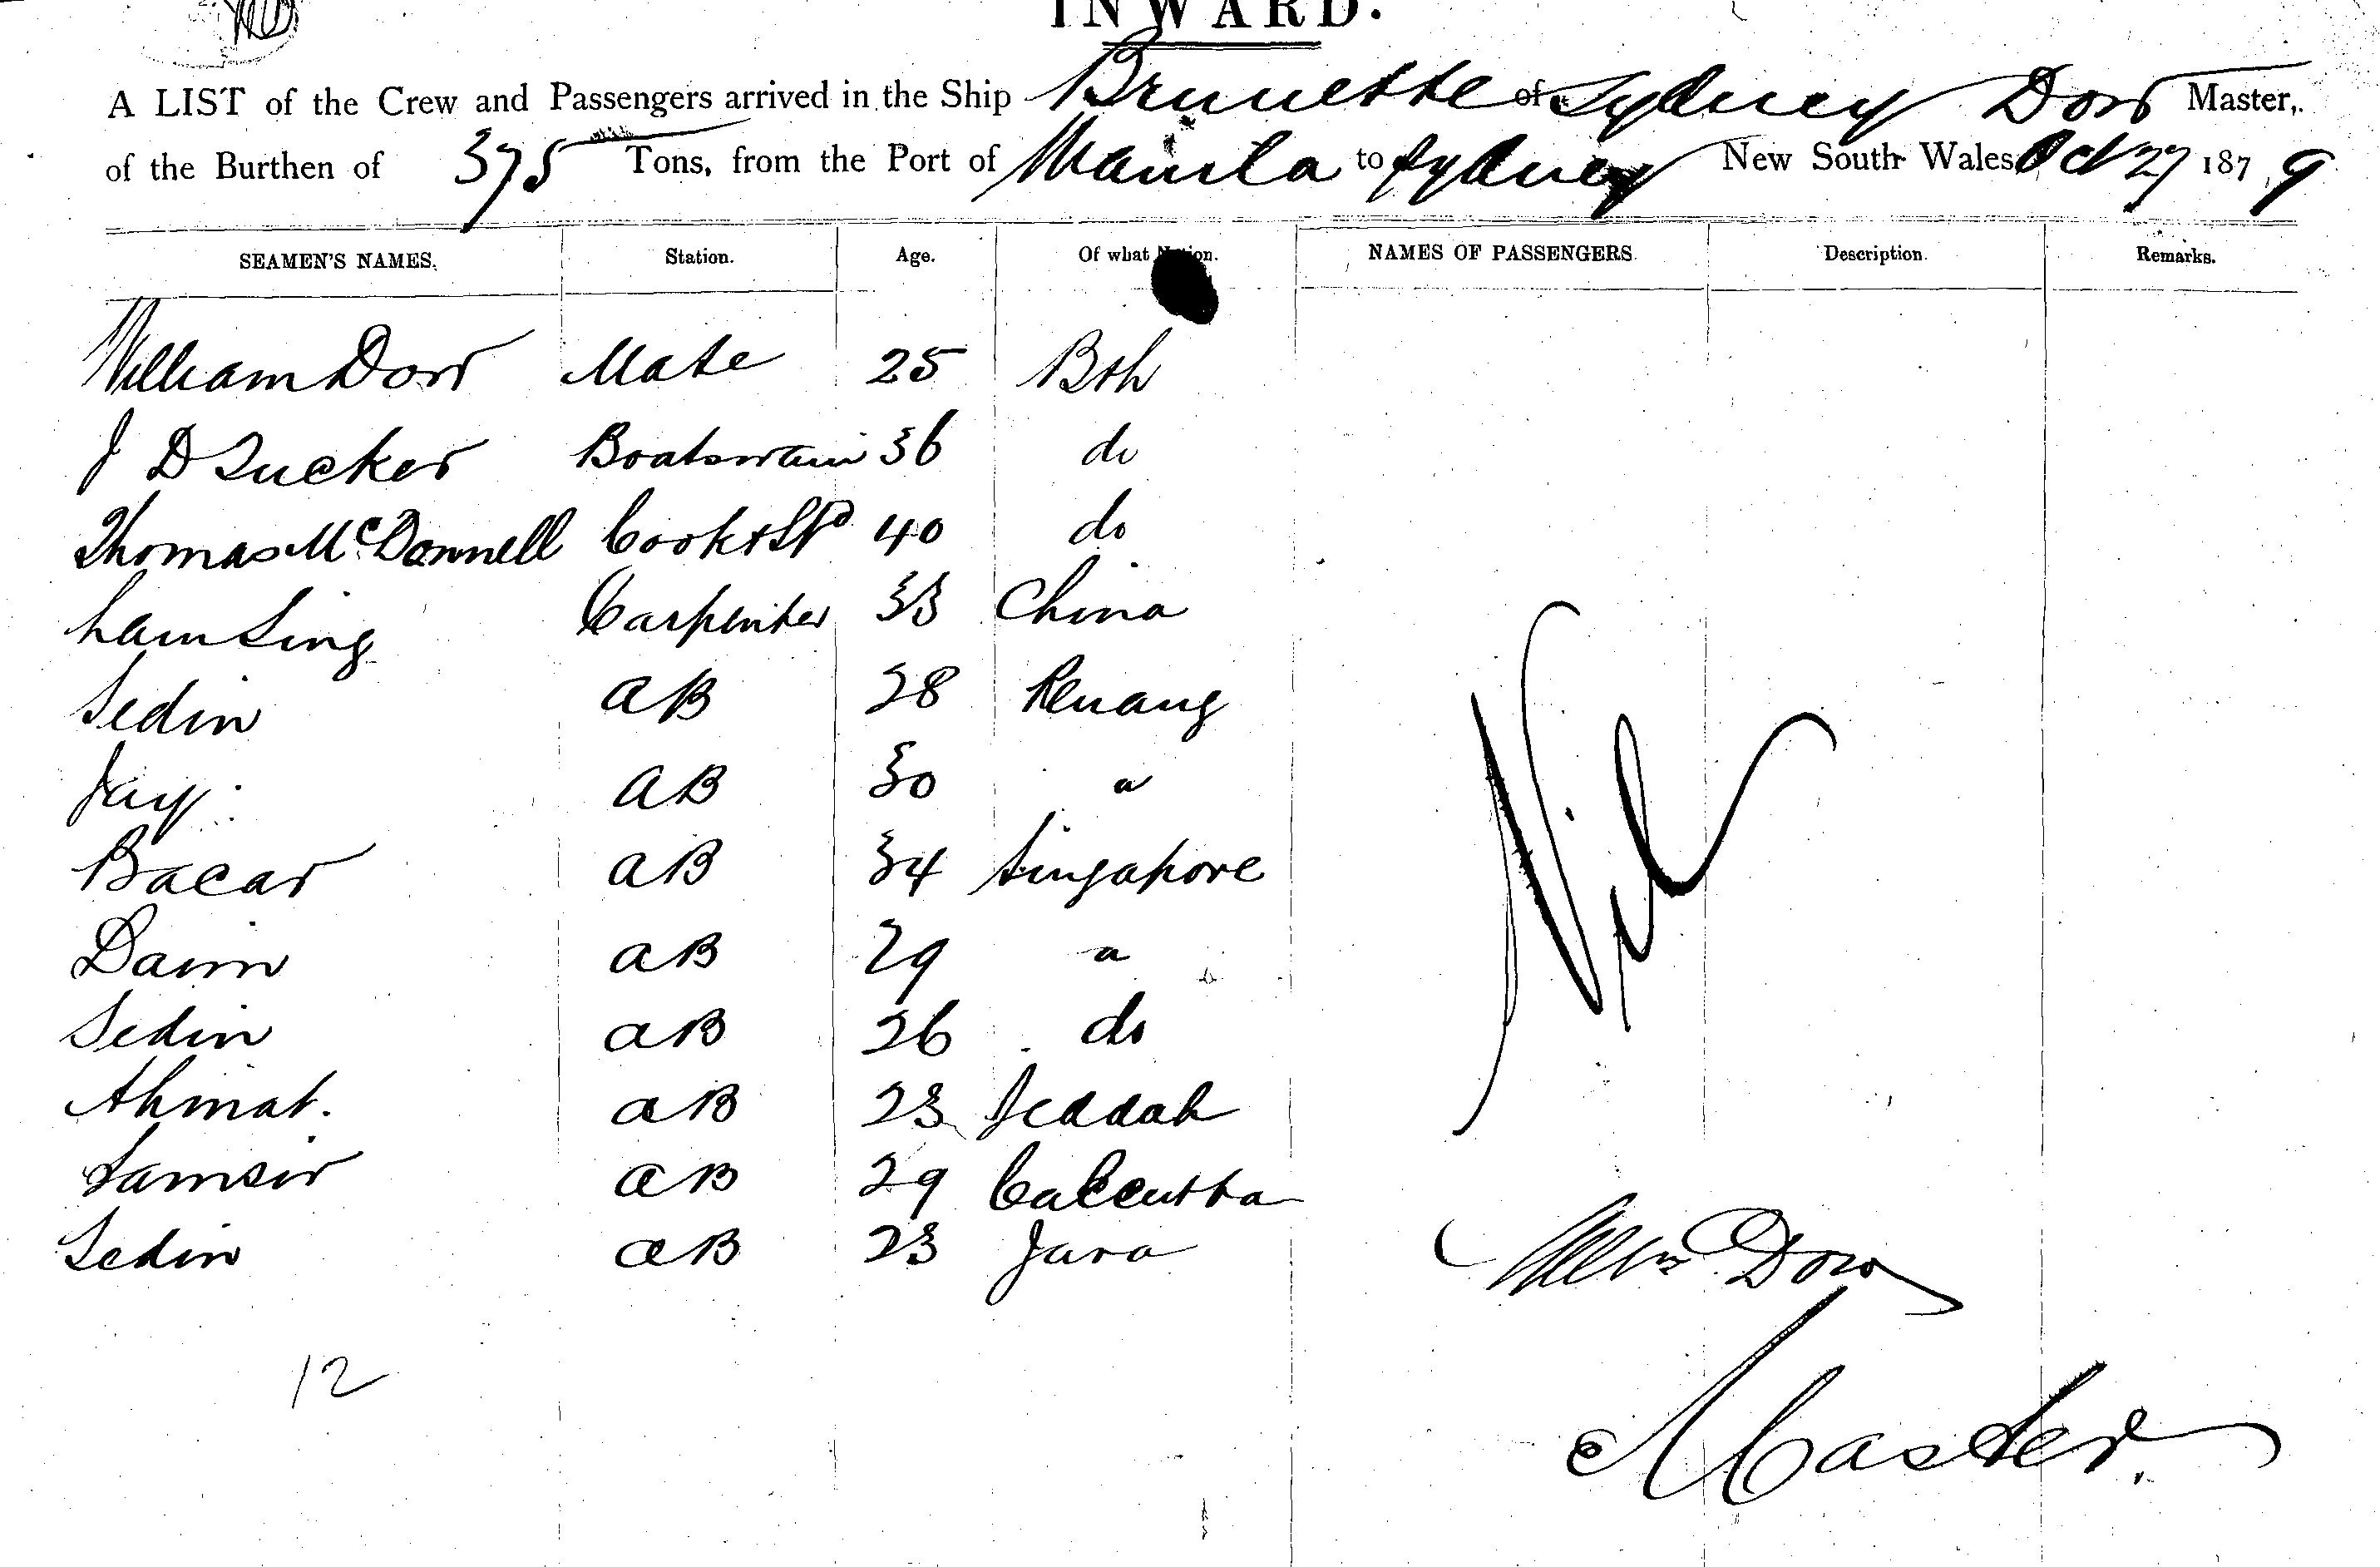 INWARD.
A LIST of the Crew and Passengers arrived in the Ship Brunette of Sydney Dow Master,
of the Burthen of 375 Tons, from the Port of Manila to Sydney New South Wales Oct 27 1879
SEAMEN'S NAMES. Station. Age. Of what Nation. NAMES OF PASSENGERS. Description. Remarks.
William Dow Mate 25 Bsh
J D Tucker Boatswain 36 do
Thomas McDonnell Cook & Std 40 do
Lam Sing Carpenter 33 China
Sedin AB 28 Penang
Jay AB 30 "
Bacar AB 34 Singapore
Daim AB 29 "
Sedin AB 26 do
Ahmat. AB 23 Jeddah
Samsir AB 29 Calcutta
Sedin AB 23 Java
Nil
Dow
Master.
12